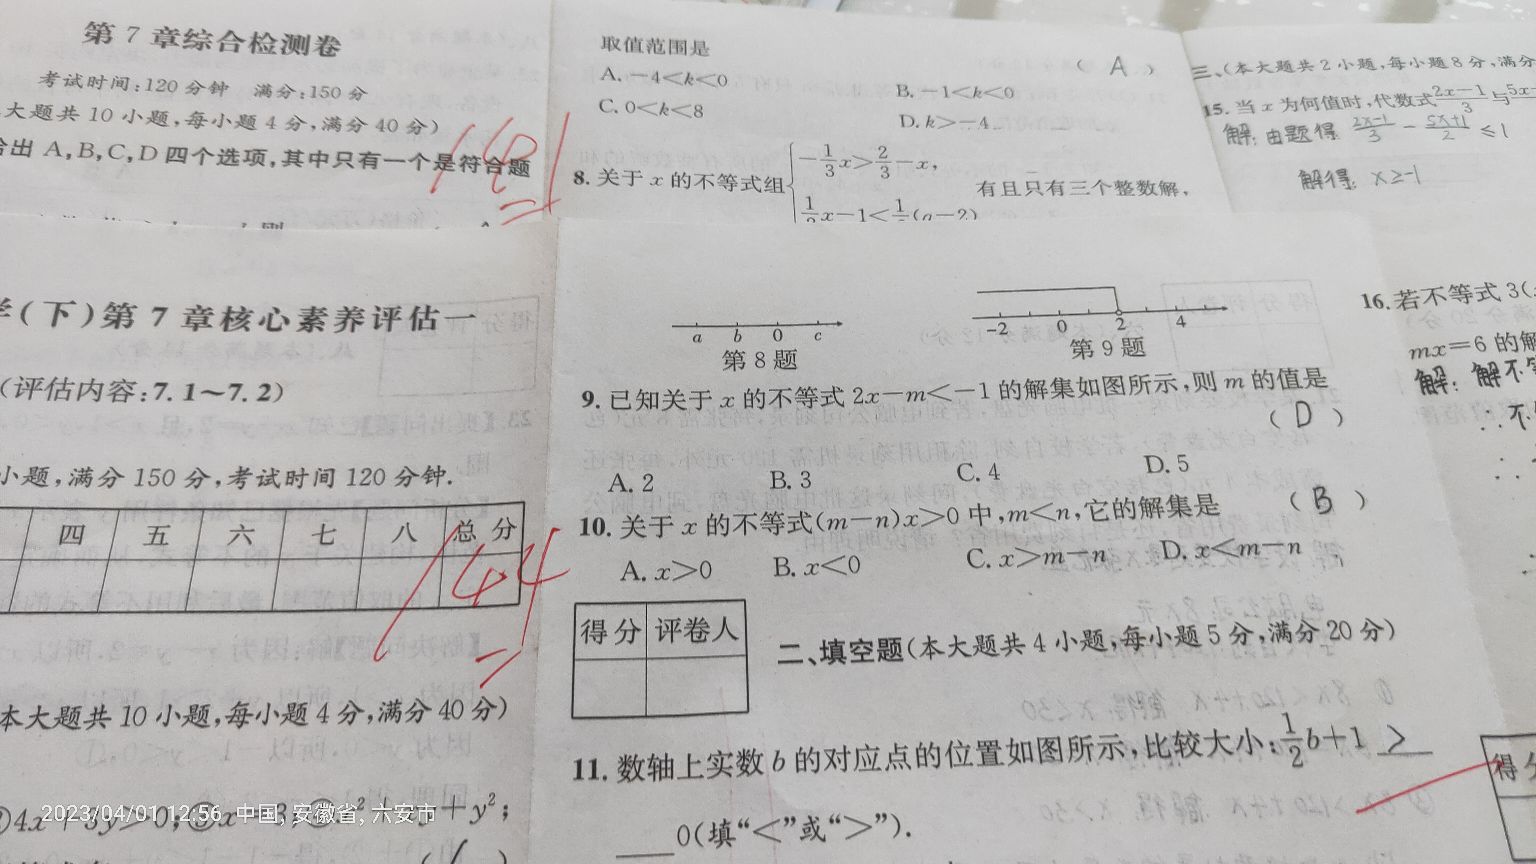 第 7 章综合检测卷
考试时间:120 分钟 满分:150 分
大题共 10 小题,每小题 4 分,满分 40 分)
出 A,B,C,D 四个选项,其中只有一个是符合题
取值范围是
( A )
A. -4<k<0
B. -1<k<0
C. 0<k<8
D. k>-4
8. 关于 x 的不等式组 -1/3x>2/3-x, 有且只有三个整数解,
三、(本大题共 2 小题,每小题 8 分,满分
15. 当 x 为何值时,代数式 2x-1/3 与 5x
解: 由题得 2x-1/3 - 5x+1/2 ≤1
解得: x≥-1
(下)第 7 章核心素养评估一
(评估内容:7.1~7.2)
小题,满分 150 分,考试时间 120 分钟.
四 五 六 七 八 总 分
144
本大题共 10 小题,每小题 4 分,满分 40 分)
2023/04/01 12:56 中国, 安徽省, 六安市
a b 0 c
第 8 题
-2 0 2 4
第 9 题
9. 已知关于 x 的不等式 2x-m<-1 的解集如图所示,则 m 的值是
( D )
A. 2 B. 3 C. 4 D. 5
10. 关于 x 的不等式(m-n)x>0 中,m<n,它的解集是 ( B )
A. x>0 B. x<0 C. x>m-n D. x<m-n
得 分 评卷人
二、填空题(本大题共 4 小题,每小题 5 分,满分 20 分)
11. 数轴上实数 b 的对应点的位置如图所示,比较大小:1/2b+1 >
0(填“<”或“>”).
16. 若不等式 3(
mx=6 的解
解: 解不
得